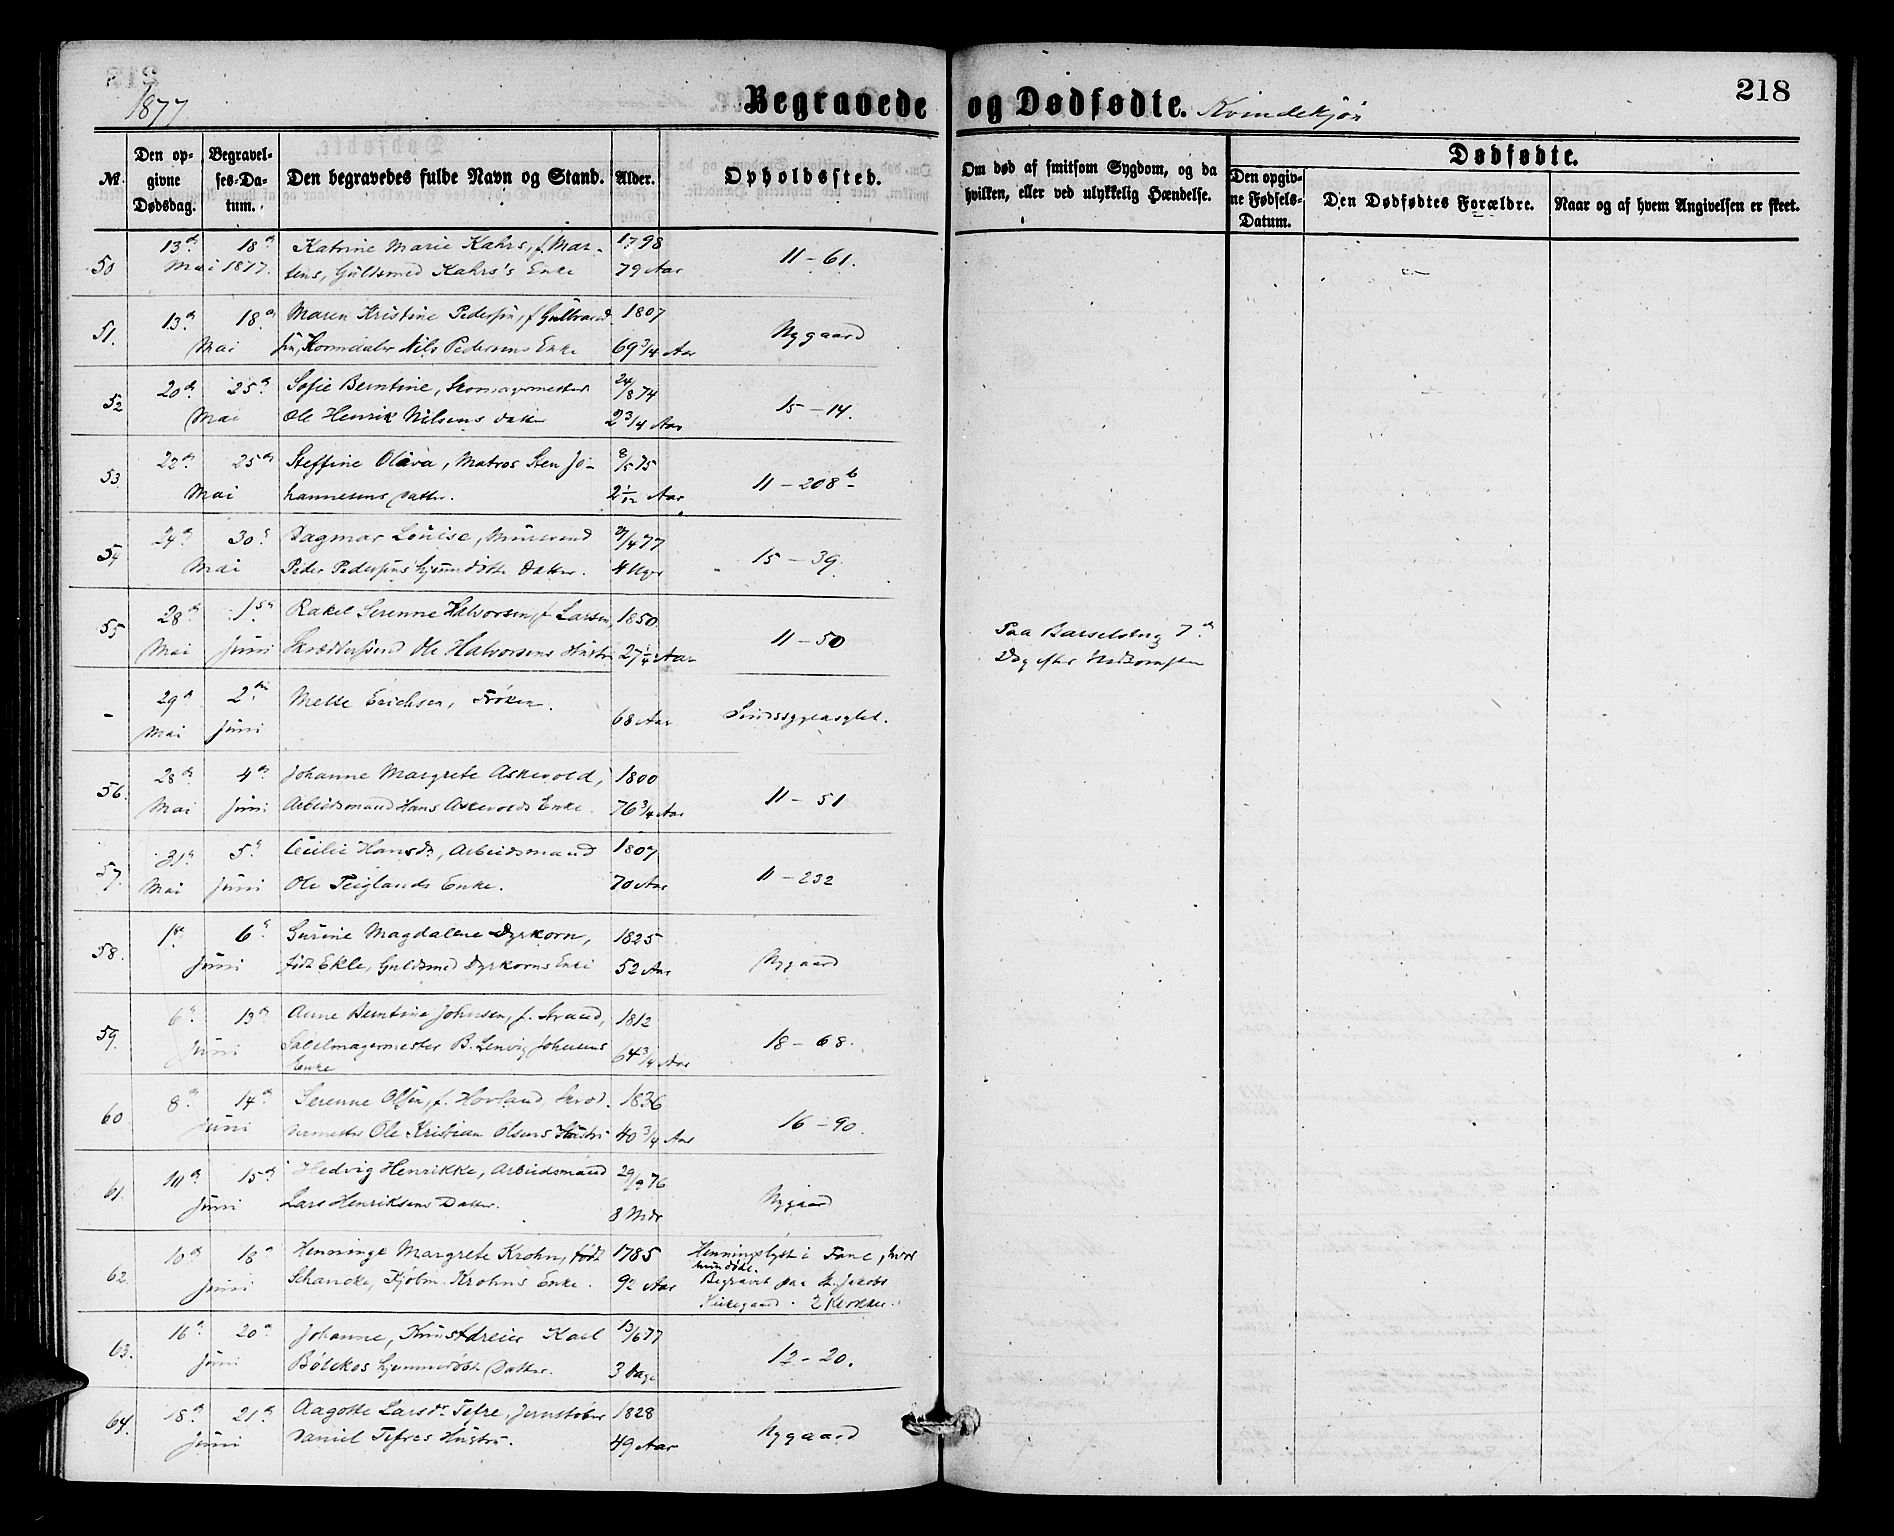 1877
Begravede og Dødfødte. Kvindekjøn
218
№.
Den opgivne Dødsdag.
Begravelses-Datum.
Den begravedes fulde Navn og Stand.
Alder.
Opholdssted.
Om død af smitsom Sygdom, og da hvilken, eller ved ulykkelig Hændelse.
Dødfødte.
Den opgivne Fødsels-Datum.
Den Dødfødtes Forældre.
Naar og af hvem Angivelsen er skeet.
50 13de 18de Katrine Marie Kahrs, f. Mar- 1798 11 – 61.
Mai 1877. tens, Guldsmed Kahrs's Enke 79 Aar
51. 13de 18de Maren Kristine Pedersen, f. Gulbrand 1807 Nygaard
Mai sen, Korndaler Nils Pedersens Enke 69 3/4 Aar
52 20de 25de Sofie Berntine, Skomagermester 24/8 74 15 – 14.
Mai Ole Henrik Nilsens Datter 2 3/4 Aar
53. 22de 25de Steffine Olava, Matros Sten Jo- 8/5 75 11 – 208b
Mai hannesens Datter. 2 1/12 Aar
54 24de 30te Dagmar Louise, Murersvend 27/4 77 15 – 39.
Mai Peder Pedersens hjemmedøbte Datter. 4 Uger
55 28de 1ste Rakel Serenne Halvorsen, f. Larsen, 1850. 11 – 50 Paa Barselseng 7de
Mai Juni Skrædersvend Ole Halvorsens Hustru 27 1/4 Aar Dag efter Nedkomsten
– 29de 2den Mette Erichsen, Frøken. 68 Aar Sindssygeasylet.
Mai Juni
56. 28de 4de Johanne Margrete Askevold, 1800 11 – 51
Mai Juni Arbeidsmand Hans Askevolds Enke. 76 3/4 Aar
57. 31te 5te Cecilie Hansdr, Arbeidsmand 1807 11 – 232
Mai Juni Ole Teiglands Enke. 70 Aar
58. 1ste 6te Magdalene Dyrkorn, 1825 Nygaard
Juni født Ekle, Guldsmed Dyrkorns Enke 52 Aar
59. 6te 13de Anne Berntine Johnsen, f. Strand, 1812 18 – 68.
Juni Sadelmagermester B. Lenvig Johnsens 64 3/4 Aar
Enke
60 8de 14de Serenne Olsen, f. Hovland, Skræd- 1836 16 – 90.
Juni dermester Ole Kristian Olsens Hustru 40 3/4 Aar
61. 10de 15de Hedvig Henrikke, Arbeidsmand 29/9 76 Nygaard
Juni Lars Henriksens Datter. 8 Mdr
62. 10de 18de Henninge Margrete Krohn, født 1785 Henningslyst i Fane, hvor
hun døde.
Juni Schancke, Kjøbm. Krohns Enke. 92 Aar Begravet paa St. Jakobs
Kirkegaard. 2 Klokker.
63. 16de 20de Johanne, Kunstdreier Karl 13/6 77 12 – 20.
Juni hjemmedøbte Datter. 3 Dage
64. 18de 21de Aagotte Larsdr Tefre, Jernstøber 1828 Nygaard
Juni Daniel Tefres Hustru. 49 Aar